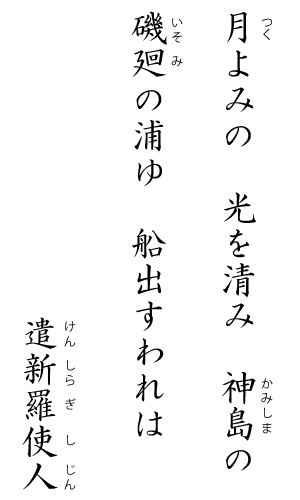 月よみの　光を清み　神島の
つく
かみしま
磯廻の浦ゆ　船出すわれは
いそみ
遣新羅使人
けんしらぎしじん